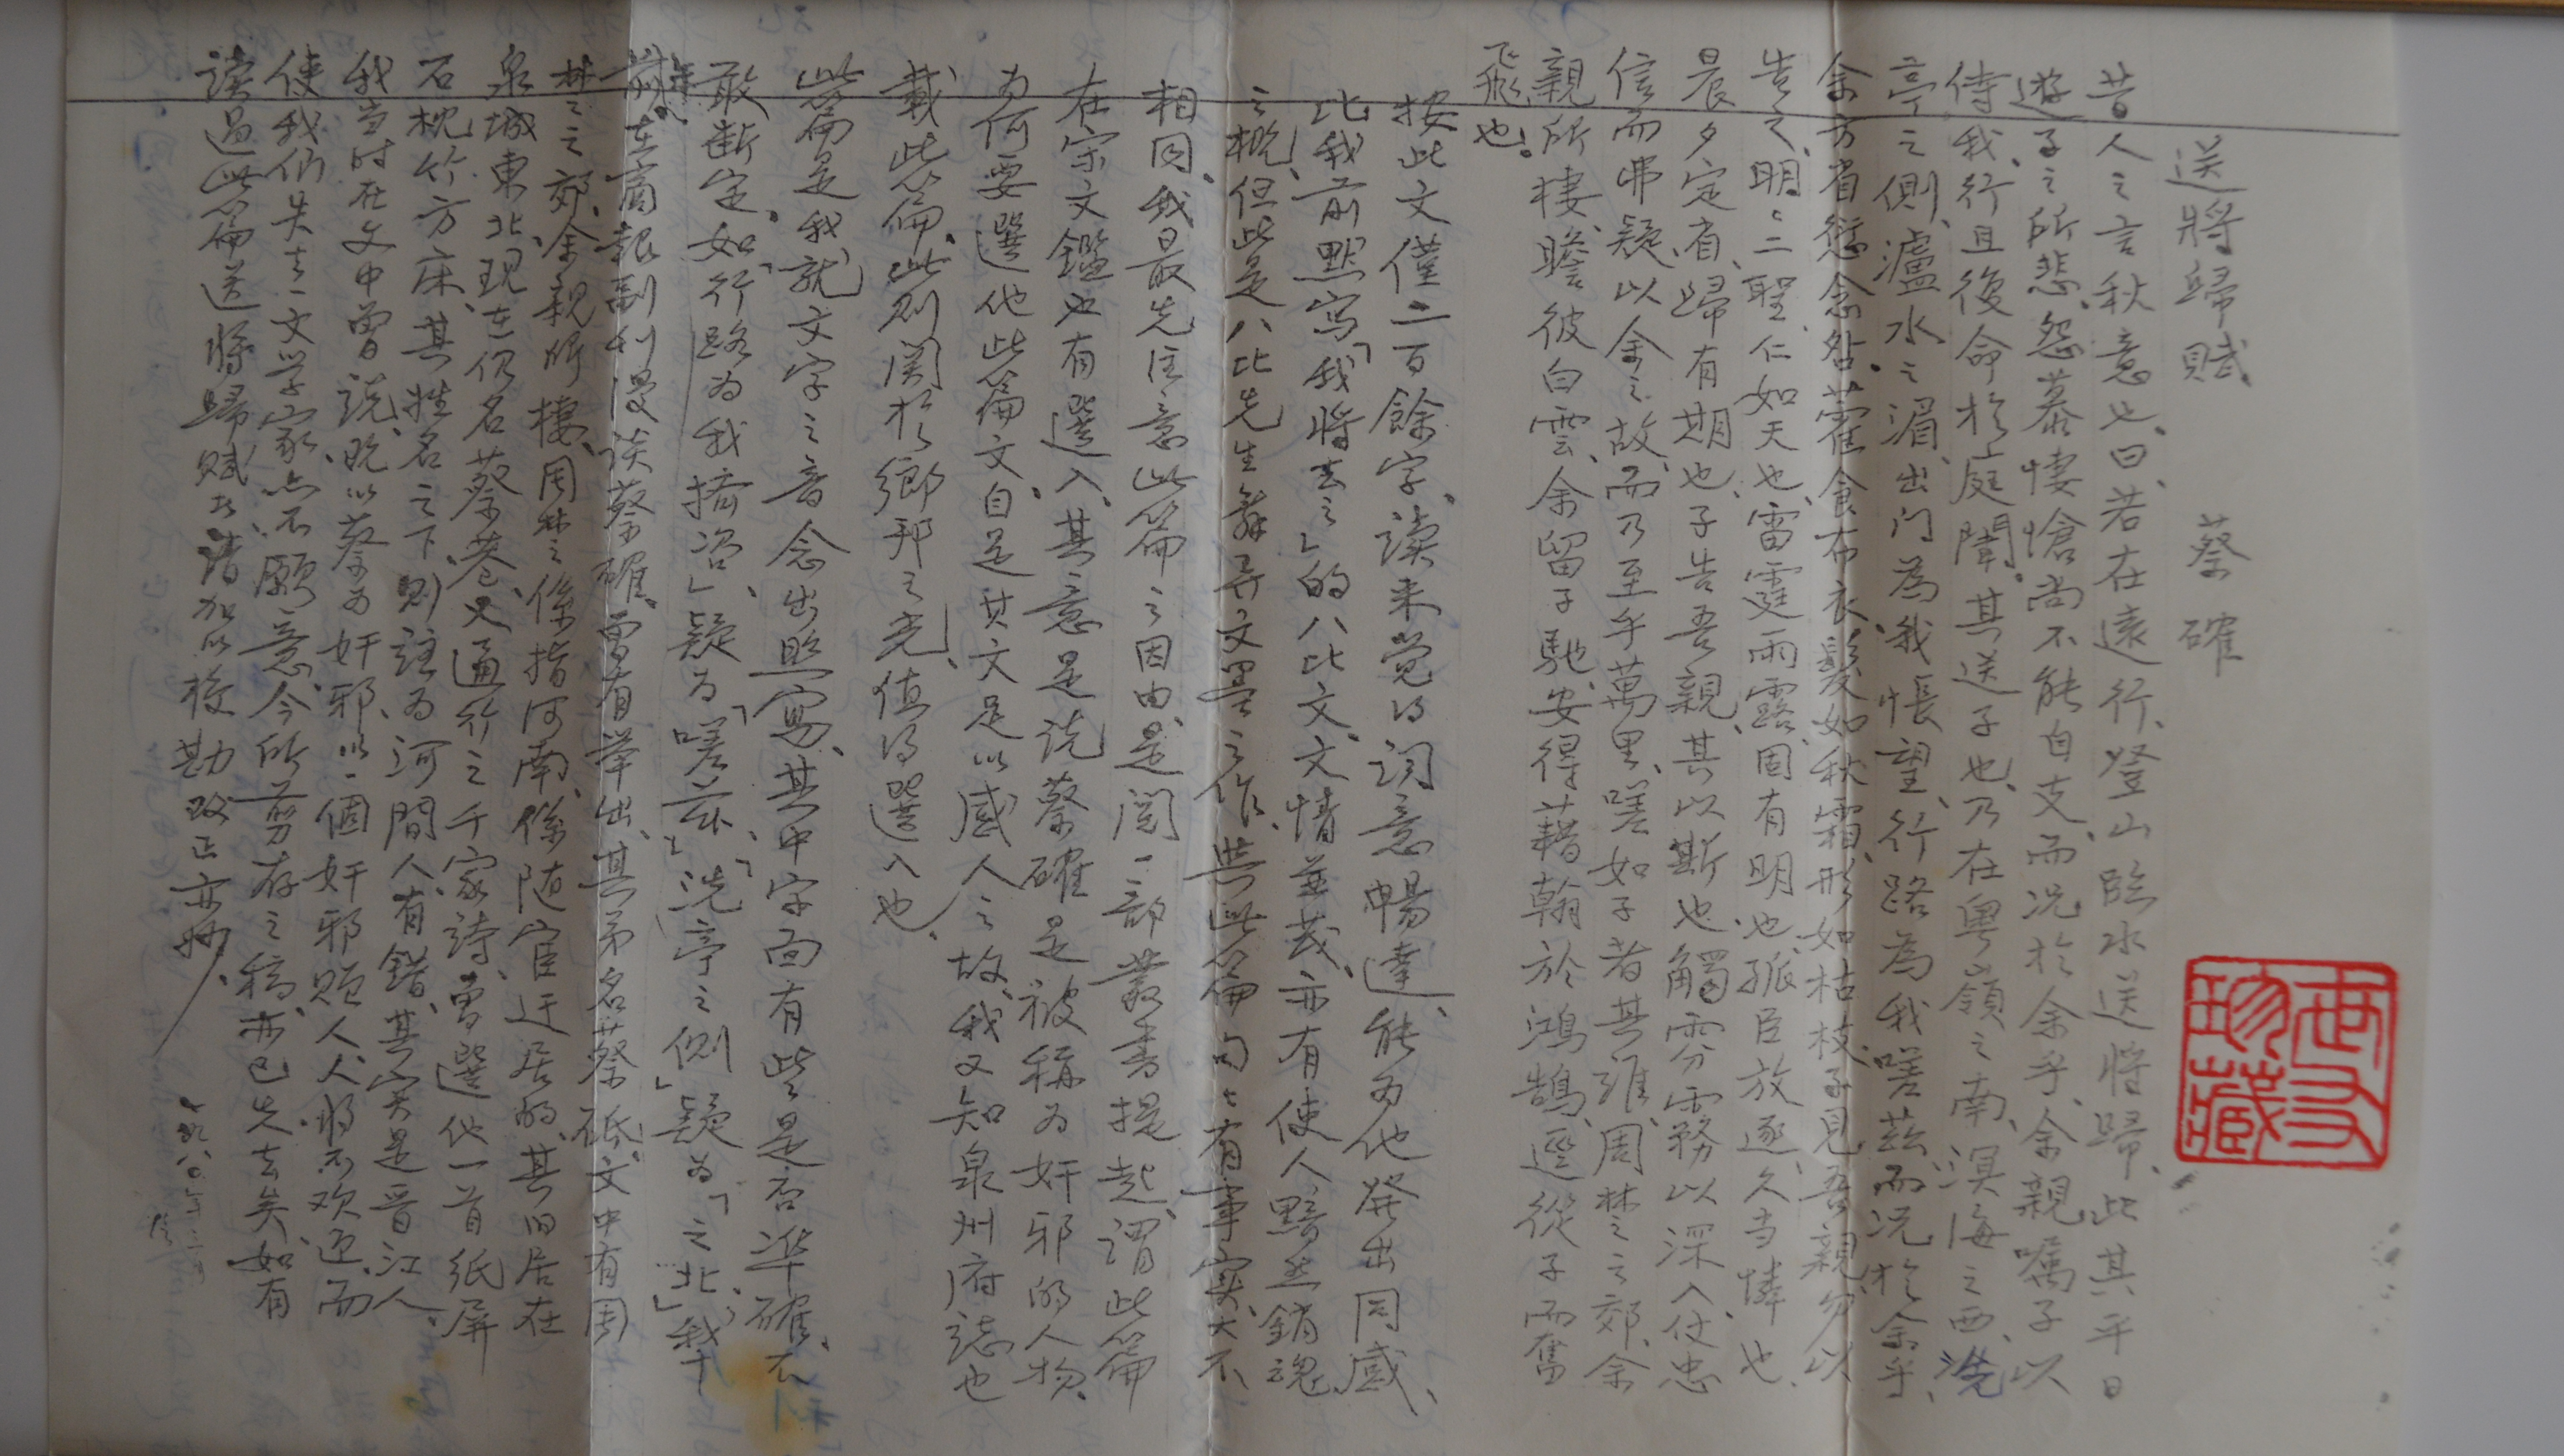 送將歸賦 蔡確
昔人之言秋意也、曰、若在遠行、登山臨水送將歸、此其平日
遊子之所悲、怨慕悽愴尚不能自支、而况於余乎、余親囑子以
侍我、行且後命於庭闈、其送子也、乃在粵嶺之南、溟海之西、洗
亭之側、瀘水之湄、出门為我悵望、行路為我嗟茲、而况於余乎、
余方省愆念咎、藿食布衣、髮如秋霜、形如枯枝、子見吾親、勿以
告之、明明二聖、仁如天也、雷霆雨露、固有明也、孤臣放逐、久当憐也、
晨夕定省、歸有期也、子告吾親、其以斯也、觸雰霧以深入、仗忠
信而弗疑、以余之故、而乃至乎萬里、嗟如子者其誰、周楚之郊、余
親所棲、瞻彼白雲、余留子馳、安得藉翰於鴻鵠、逕從子而奮
飛也。
按此文僅二百餘字、读来觉得词意暢達、能为他発出同感、
比我前默寫「我將去之」的八比文、文情並茂、亦有使人黯然銷魂
之概、但此是八比先生舞弄文墨之作、與此篇句句有事实、大不
相同、我最先注意此篇之因由、是閱一部叢書提起、謂此篇
在宋文鑑也有選入、其意是说蔡確是被稱为奸邪的人物、
为何要選他此篇文、自是其文足以感人之故、我又知泉州府誌也
載此篇、此则関於鄉邦之光、值得選入也。
此篇是我就文字之音念出照寫、其中字面有些是否準確、不
敢断定、如「行路为我擠咨」疑为「嗟茲」、「洗亭之側」疑为「之北」、我
前年在商報副刊漫谈蔡確、曾有举出、其弟名蔡碩、文中有周
楚之郊、余親所棲、周楚係指河南、係随官迁居的、其旧居在
泉城東北、現在仍名蔡巷、又通行之千家詩、曾選他一首紙屏
石枕竹方床、其姓名之下、则註为河間人有錯、其实是晋江人。
我当时在文中曾说、既以蔡为奸邪、以一個奸邪贬人、人将不欢迎、而
使我们失去一文学家、亦不願意、今所剪存之稿、亦已失去矣、如有
读過此篇送將歸賦者、請加以校勘改正亦妙。
一九八〇年三月
世友珍藏